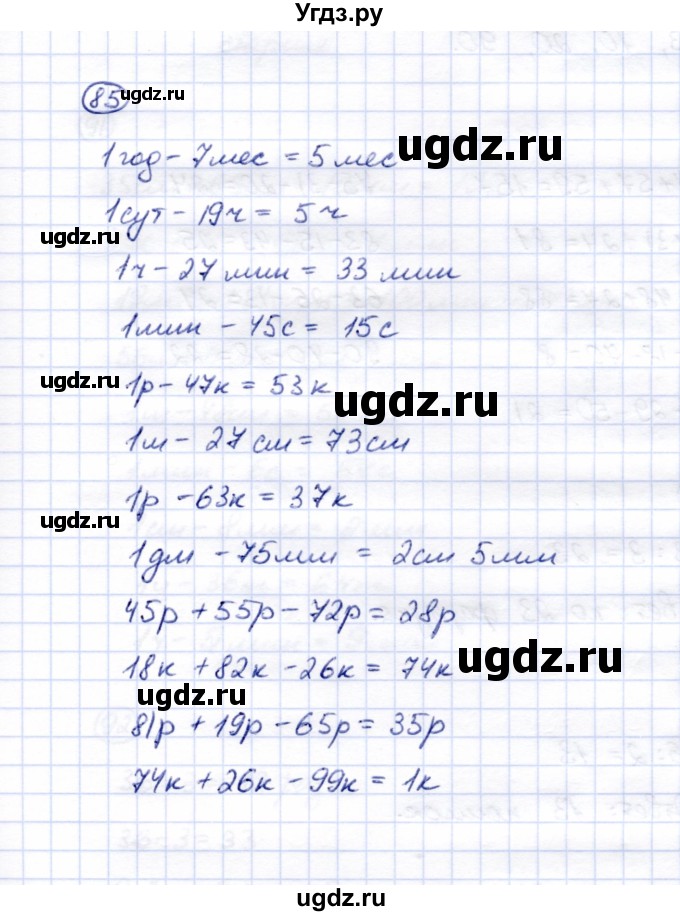 Угдз.ру
85
ugdz.ru
1 год - 7 мес = 5 мес
ugdz.ru
1 сут - 19 ч = 5 ч
ugdz.ru
1 ч - 27 мин = 33 мин
1 мин - 45 с = 15 с
ugdz.ru
1 р - 47 к = 53 к
ugdz.ru
1 м - 27 см = 73 см
1 р - 63 к = 37 к
ugdz.ru
1 дм - 75 мм = 2 см 5 мм
45 р + 55 р - 72 р = 28 р
18 к + 82 к - 26 к = 74 к
ugdz.ru
ugdz.ru
81 р + 19 р - 65 р = 35 р
74 к + 26 к - 99 к = 1 к
ugdz.ru